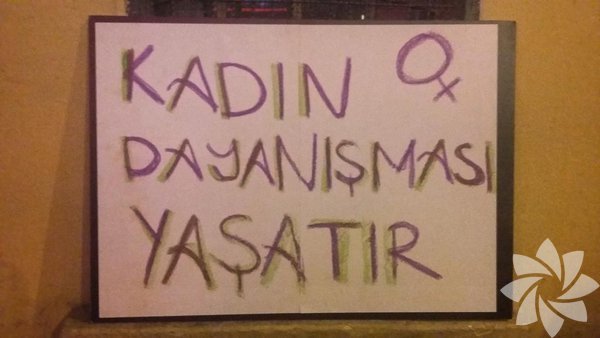 KADIN
DAYANIŞMASI
YAŞATIR